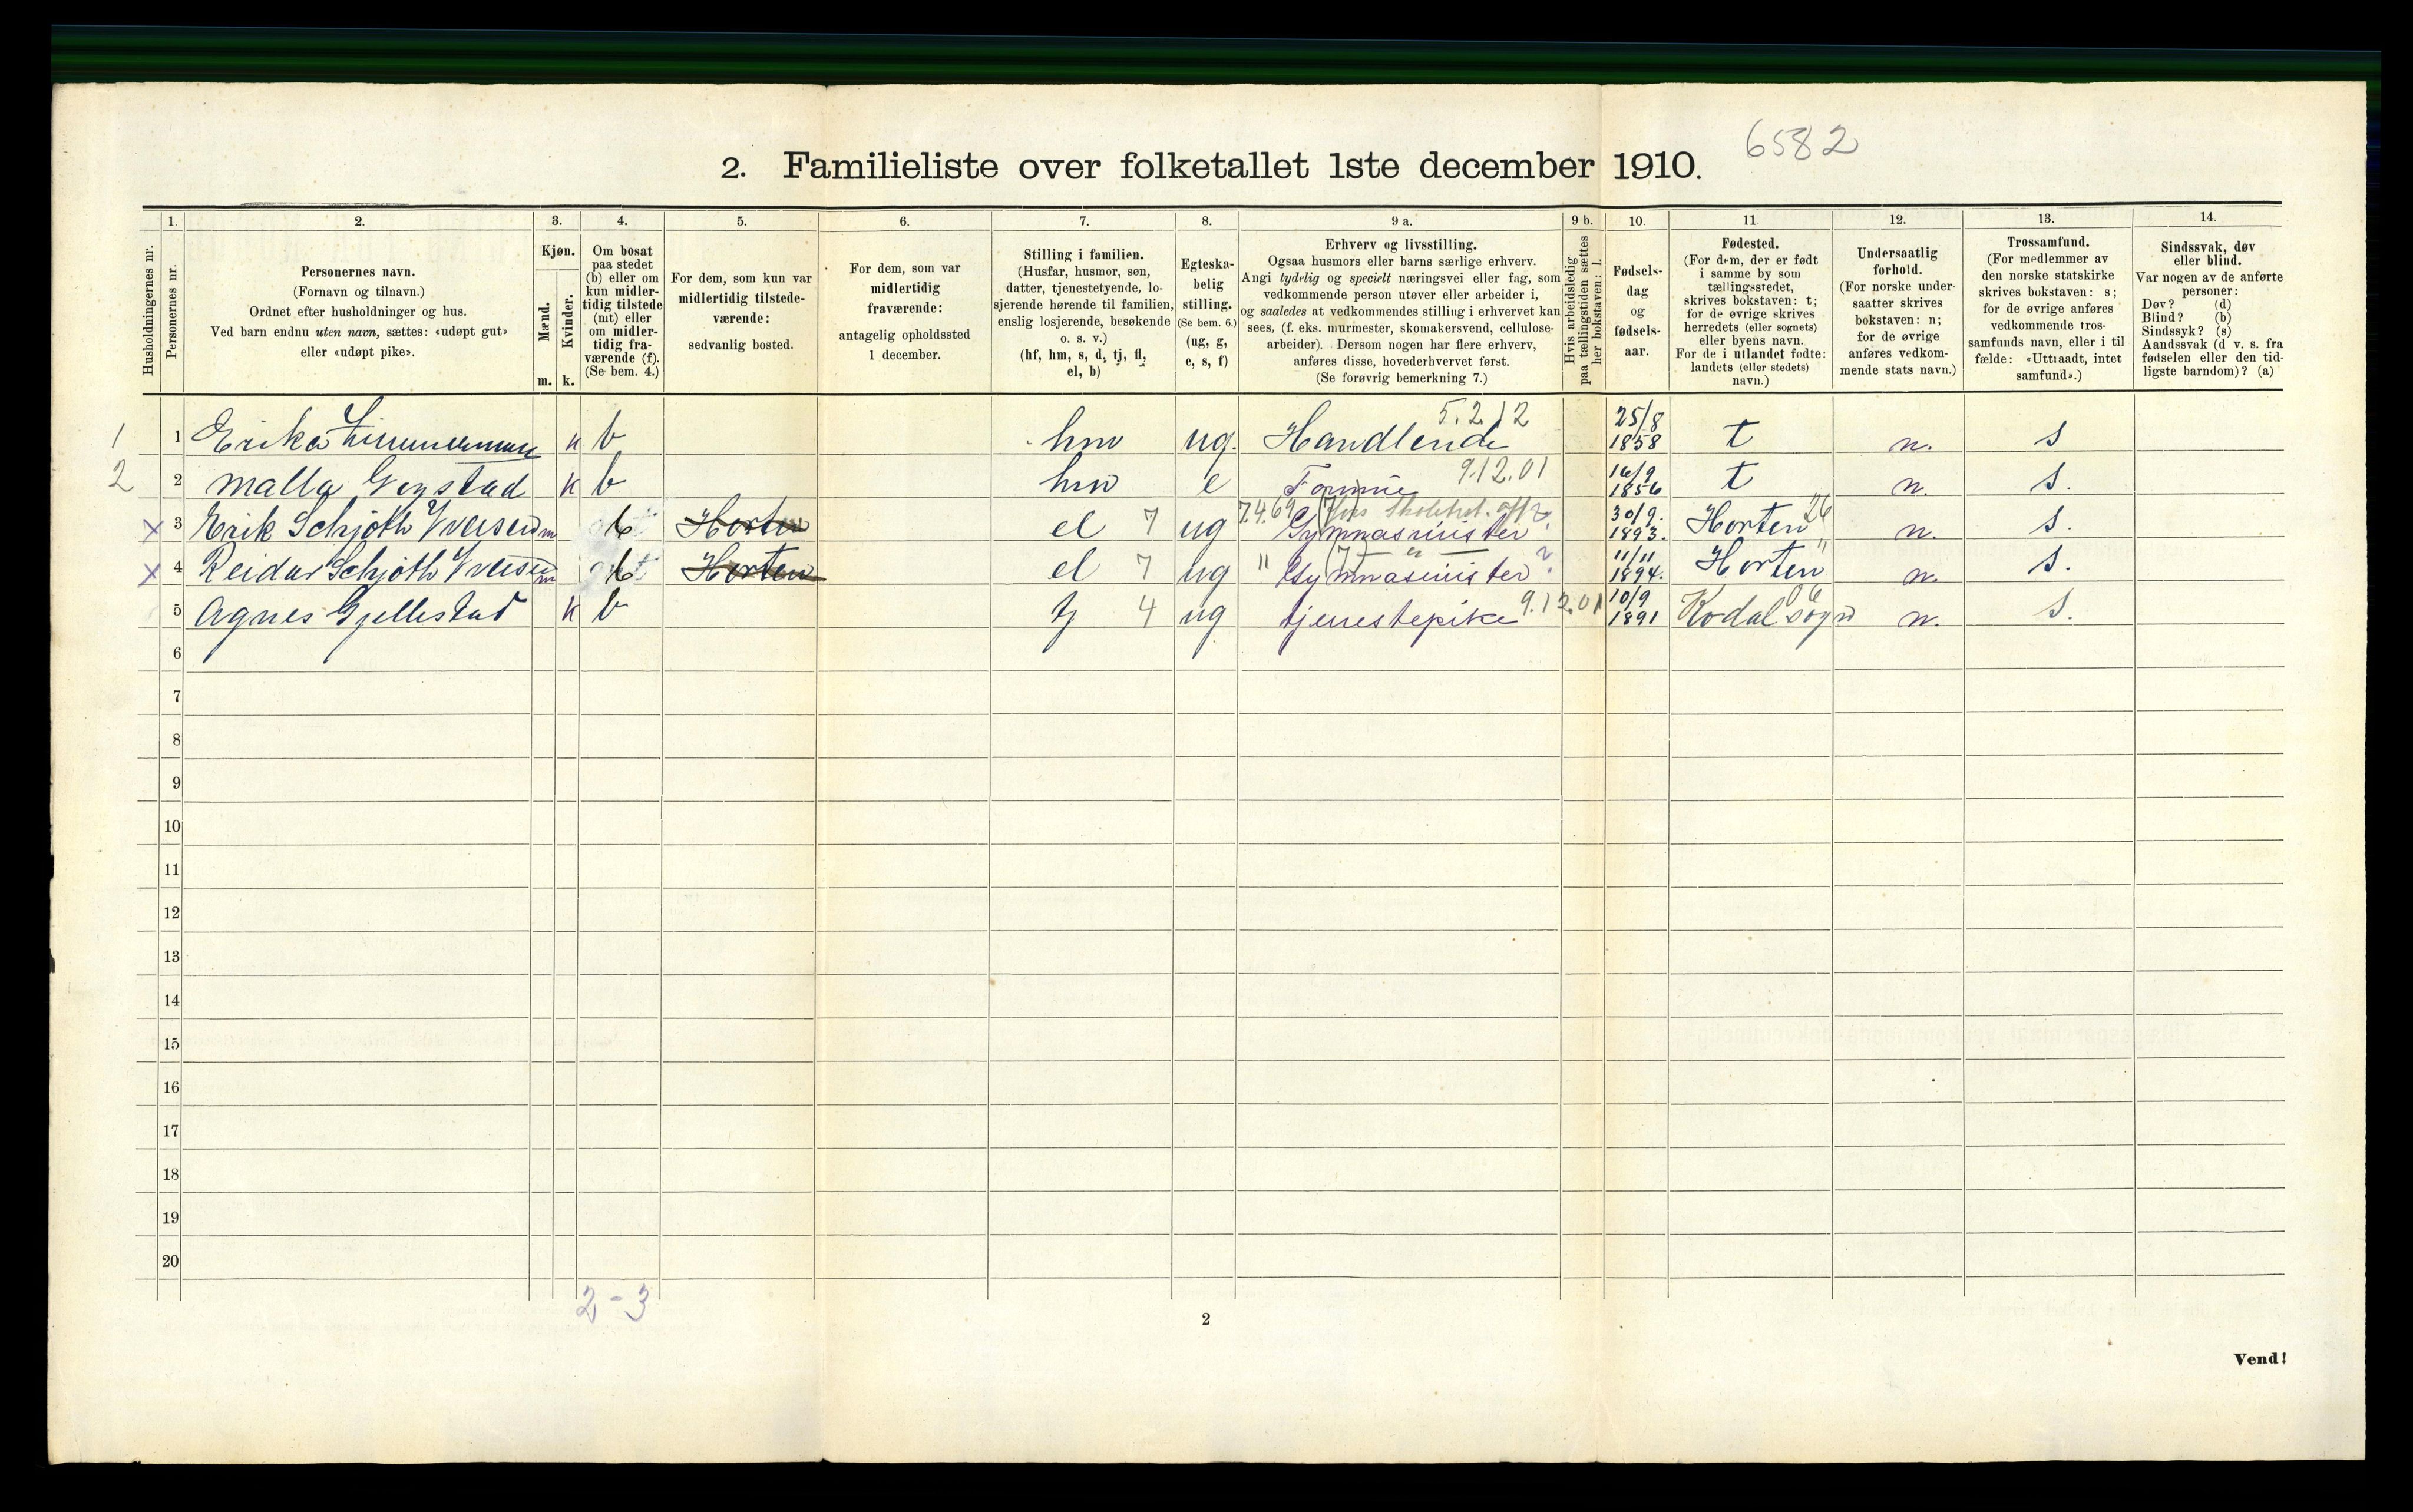 6582
2. Familieliste over folketallet 1ste december 1910.
1. 2. 3. 4. 5. 6. 7. 8. 9 a. 9 b. 10. 11 12. 13. 14.
Husholdningernes nr.
Personernes nr.
Personernes navn.
(Fornavn og tilnavn.)
Ordnet efter husholdninger og hus.
Ved barn endnu uten navn, sættes: «udøpt gut»
eller «udøpt pike».
Kjøn.
Mænd.
Kvinder.
m. k.
Om bosat
paa stedet
(b) eller om
kun midler-
tidig tilstede
(mt) eller
om midler-
tidig fra-
værende (f).
(Se bem. 4.)
For dem, som kun var
midlertidig tilstede-
værende:
sedvanlig bosted.
For dem, som var
midlertidig
fraværende:
antagelig opholdssted
1 december.
Stilling i familien.
(Husfar, husmor, søn,
datter, tjenestetyende, lo-
sjerende hørende til familien,
enslig losjerende, besøkende
o. s. v.)
(hf, hm, s, d, tj, fl,
el, b)
Egteska-
belig
stilling.
(Se bem. 6.)
(ug, g,
e, s, f)
Erhverv og livsstilling.
Ogsaa husmors eller barns særlige erhverv.
Angi tydelig og specielt næringsvei eller fag, som
vedkommende person utøver eller arbeider i,
og saaledes at vedkommendes stilling i erhvervet kan
sees, (f. eks. murmester, skomakersvend, cellulose-
arbeider). Dersom nogen har flere erhverv,
anføres disse, hovederhvervet først.
(Se forøvrig bemerkning 7.)
Hvis arbeidsledig
paa tællingstiden sættes
her bokstaven: l.
Fødsels-
dag
og
fødsels-
aar.
Fødested.
(For dem, der er født
i samme by som
tællingsstedet,
skrives bokstaven: t;
for de øvrige skrives
herredets (eller sognets)
eller byens navn.
For de i utlandet fødte:
landets (eller stedets)
navn.)
Undersaatlig
forhold.
(For norske under-
saatter skrives
bokstaven: n;
for de øvrige
anføres vedkom-
mende stats navn.)
Trossamfund.
(For medlemmer av
den norske statskirke
skrives bokstaven: s;
for de øvrige anføres
vedkommende tros-
samfunds navn, eller i til
fælde: «Uttraadt, intet
samfund».)
Sindssvak, døv
eller blind.
Var nogen av de anførte
personer:
Døv? (d)
Blind? (b)
Sindssyk? (s)
Aandssvak (d v. s. fra
fødselen eller den tid-
ligste barndom)? (a)
1 1 Erika k b hm ug. Handlende 5.2.12 25/8 1858 t n. s
2 2 Malla k b hm e 9.12.01 16/9 1856 t n. s.
x 3 Erik Schjøth Iversen m b Horten el 7 ug 7.4.69 Gymnasieister 30/9. 1893. Horten 26 n. s.
x 4 Reidar Schjøth Iversen m b Horten el 7 ug " Gymnasieister ? 11/11 1894. Horten " n. s.
5 Agnes Gjellestad k b tj 4 ug tjenestepike 9.12.01 10/9 1891 Kodal sogn n. s.
6
7
8
9
10
11
12
13
14
15
16
17
18
19
20
2-3
2
Vend!